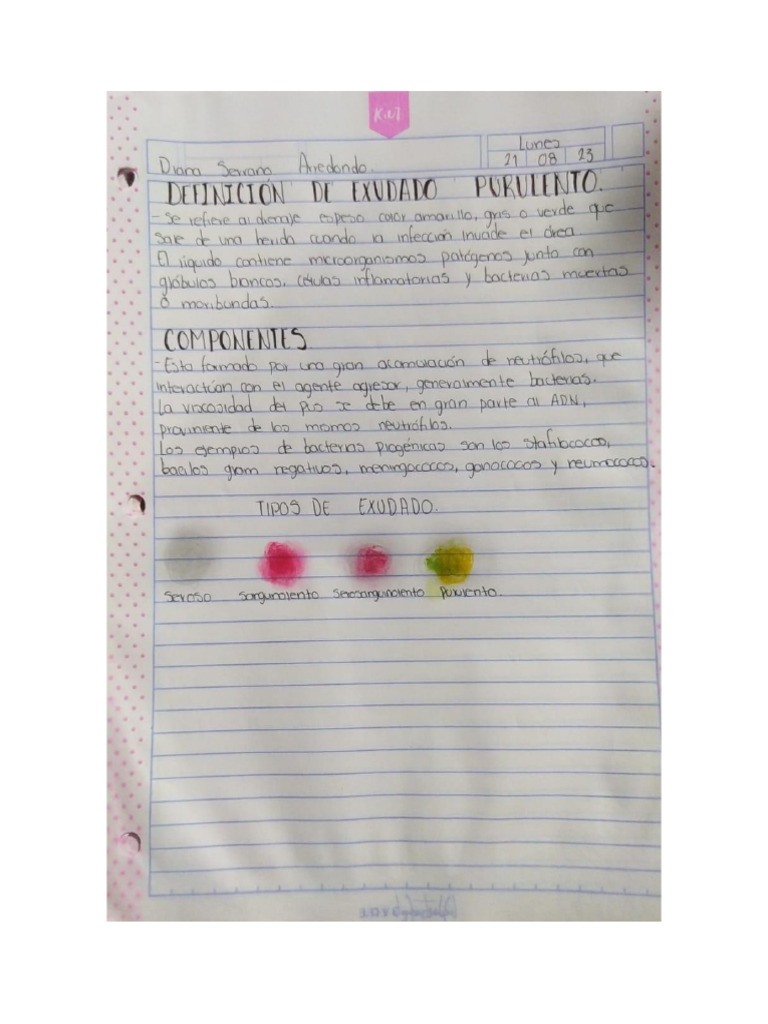 Kiut
Lunes
Diana Serrano Arredondo.
21 08 23
DEFINICIÓN DE EXUDADO PURULENTO.
- Se refiere al drenaje espeso color amarillo, gris o verde que
sale de una herida cuando la infección invade el área.
El liquido contiene microorganismos patógenos junto con
glóbulos blancos, células inflamatorias y bacterias muertas
o moribundas.
COMPONENTES
- Esta formado por una gran acumulación de neutrófilos, que
interactúan con el agente agresor, generalmente bacterias.
La viscosidad del pus se debe en gran parte al ADN,
proviniente de los mismos neutrófilos.
Los ejemplos de bacterias piogénicas son los stafilococos,
bacilos gram negativos, meningococos, gonococos y neumococos.
TIPOS DE EXUDADO.
Seroso Sanguinolento Serosanguinolento Purulento.